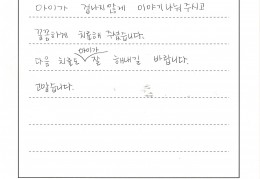 아이가 겁나지않게 이야기나눠 주시고
꼼꼼하게 치료해 주셨습니다.
다음 치료도 아이가 잘 해내길 바랍니다.
고맙습니다.